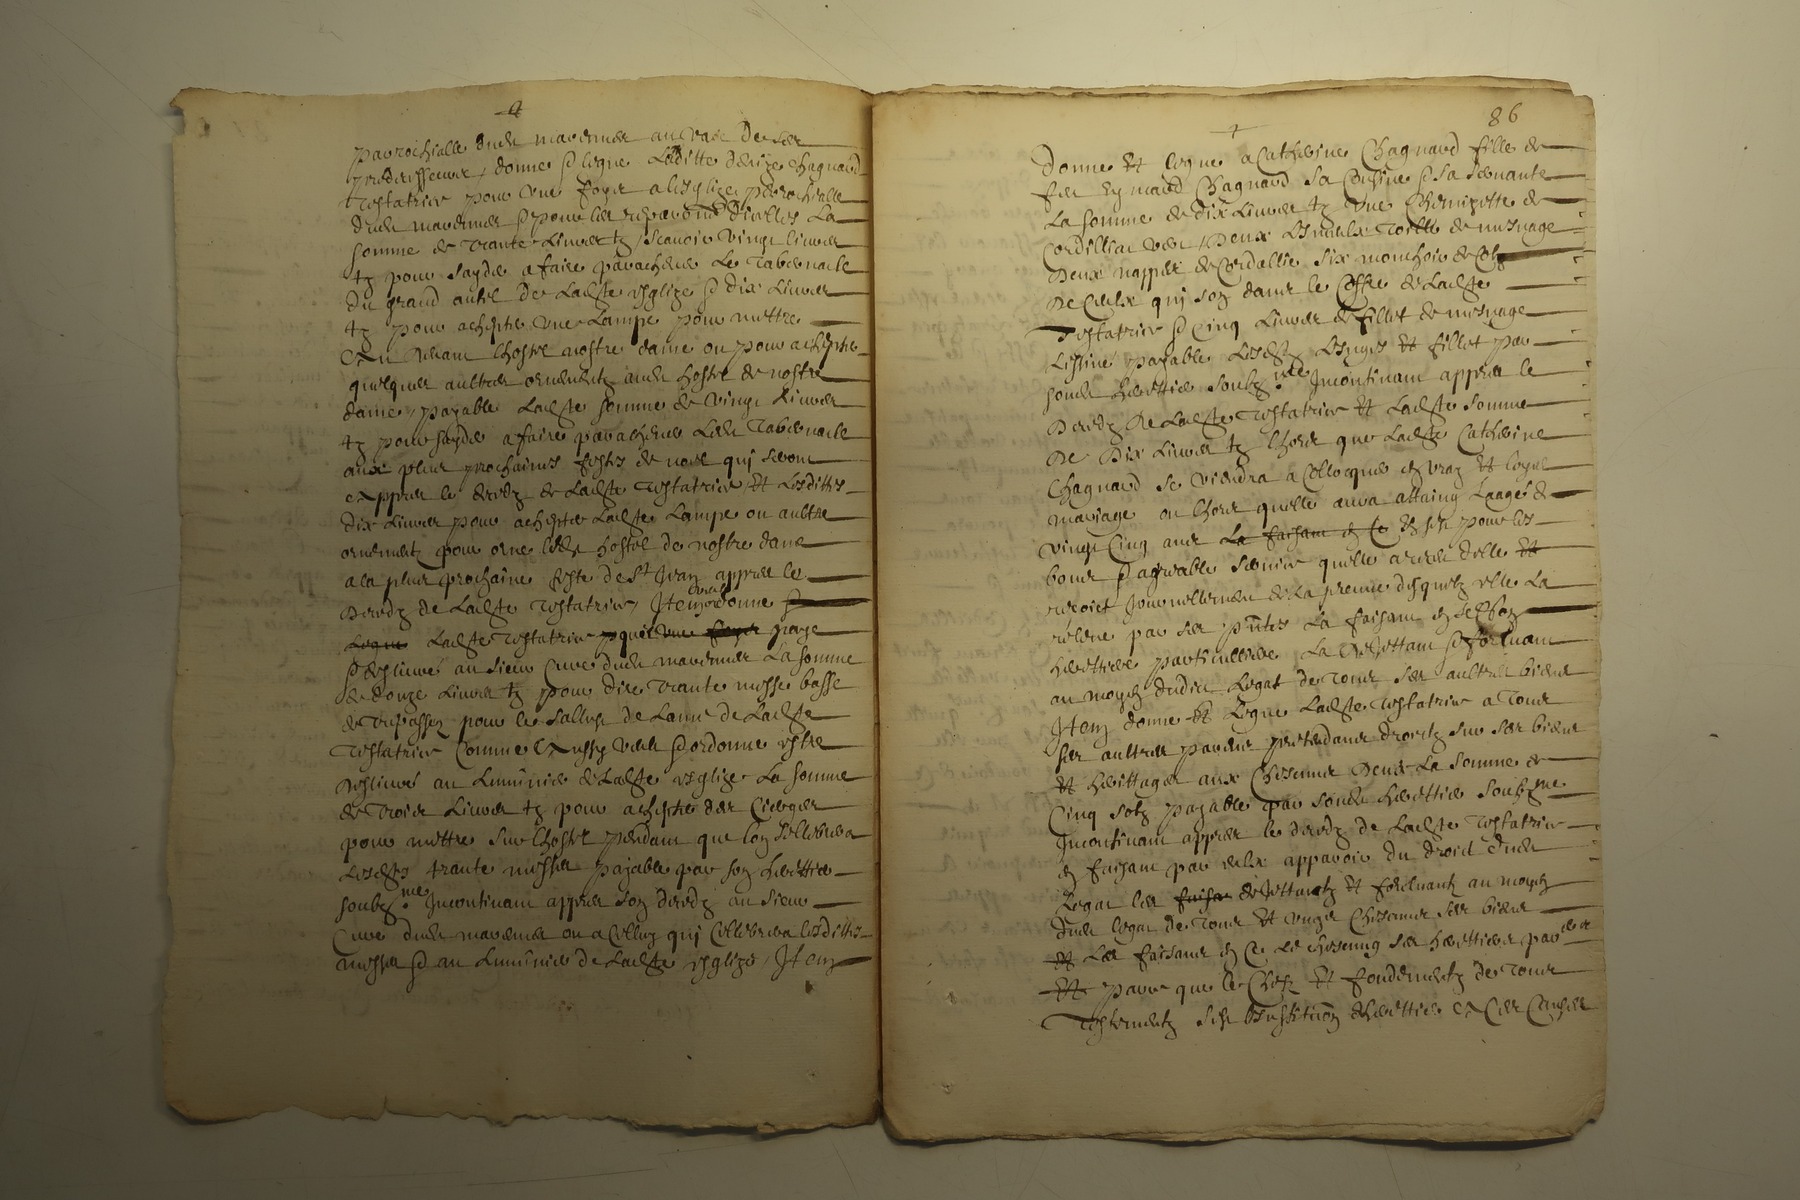 parrochialle dudt mavernier au vase de ses
predecesseurs, donne et legue Laditte denize Chagnard
testatrice pour une foys a lesglize parrochialle
dudt mavernier et pour les reparaons dicelles La
somme de trante Livres tz, scavoir vingt livres
tz pour sayder a faire parachever Le tabernacle
du grand autel de Ladte esglize et dix Livres
tz pour achepter une Lampe pour mettre
devant lhostel nostre dame ou pour achepter
quelques aultres ornements audt hostel de nostre
dame, payable Ladte somme de vingt Livres
tz pour sayder a faire parachever Ledt tabernacle
aux plus prochaines festes de noel qui seront
appres le deredz de Ladte testatrice, et Lesdittes
dix Livres pour achepter Ladte Lampe ou aultre
ornements pour orne ledt hostel de nostre dame
a la plus prochaine feste de St Jean appres le
deredz de Ladte testatrice, Item ordonne et
Legue Ladte testatrice quoi une foys paye
et deslivré au sieur Cure dudt mavernier La somme
de douze Livres tz pour dire trante messe basse
de trespassez pour le sallut de Lame de Ladte
testatrice Comme aussy veult et ordonne estre
deslivré au Luminier de Ladte esglize La somme
de trois Livres tz pour achepter des Cierges
pour mettre sur lhostel pendant que lon sellebrera
Lesdtes trante messes payable par son heritier
soubz me Incontinant appres son deredz au sieur
Cure dudt mavernier ou a Celluy qui Cellebrera lesdittes
messes et au Luminier de Ladte esglize, Item
86
donne et legue a Catherine Chagnard fille de
feu Eymard Chagnard sa Cousine et sa servante
La somme de dix Livres tz une Chemizette de
Cordilliat vert, deux Linceulx toille de mesnage
deux nappes de Cordallie six mouchoir de Col
de Ceulx qui son dans le Coffre de Ladte
testatrice et Cinq Livres de fillet de mesnage
Lissivé payable Lesdtz Linges et fillet par
sondt heritier soubz me Incontinant appres le
deredz de Ladte testatrice et Ladte somme
de dix Livres tz lhors que Ladte Catherine
Chagnard se viendra a Collocquer en vray et loyal
mariage ou lhors quelle aura attaing Laage de
vingt Cinq ans La faisant en Ce et ce pour les
bons et agreable service quelle a receu delle et
recoict Journellement de La preuve desquelz elle La
releve par ses pntes La faisant en ce son
heritiere particulliere La rejettant et forcluant
au moyen dudict Legat de tous ses aultres biens
Item donne et Legue Ladte testatrice a tous
ses aultres parens pretendans droictz sur ses biens
et heritages aux Chescung deux La somme de
Cinq solz payable par sondt heritier soubz me
Incontinant appres le deredz de Ladte testatrice
en faisant par eulx apparoir du droict dudt
Legat les faisan dejettantz et forcluantz au moyen
dudt legat de tous et ungs Chescuns ses biens
et Les faisans en Ce Le Chescung ses heritiers par
et parce que le Chef et fondement de tous
testements est Institution dheritier a Ces Causes